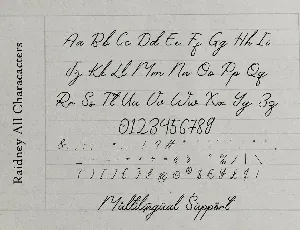 Raidney All Characacters
Aa Bb Cc Dd Ee Ff Gg Hh Ii
Jj Kk Ll Mm Nn Oo Pp Qq
Rr Ss Tt Uu Vv Ww Xx Yy Zz
0123456789
Multilingual Support